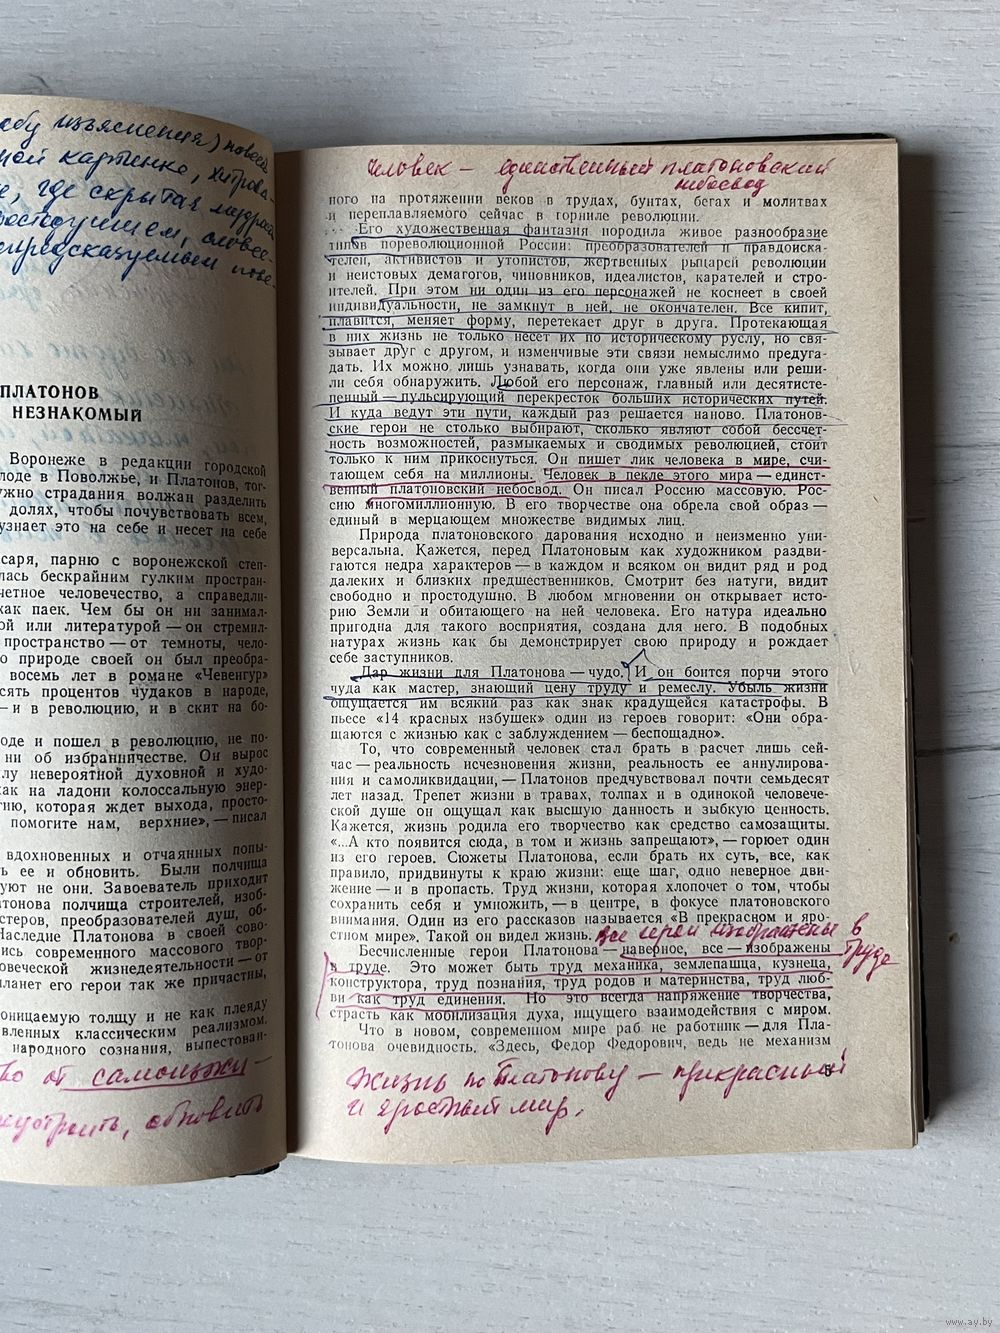 изъяснения) повесе
ной картинке, хитрова-
е, где скрытая мудрость
простодушием, словес-
непредсказуемым пове-
ПЛАТОНОВ
НЕЗНАКОМЫЙ
Воронеже в редакции городской
лоде в Поволжье, и Платонов, тог-
ужно страдания волжан разделить
долях, чтобы почувствовать всем,
узнает это на себе и несет на себе
саря, парню с воронежской степ-
лась бескрайним гулким простран-
четное человечество, а справедли-
как паек. Чем бы он ни занимал-
ой или литературой — он стремил-
пространство — от темноты, чело-
о природе своей он был преобра-
восемь лет в романе «Чевенгур»
сять процентов чудаков в народе,
— и в революцию, и в скит на бо-
оде и пошел в революцию, не по-
ни об избранничестве. Он вырос
лу невероятной духовной и худо-
как на ладони колоссальную энер-
гию, которая ждет выхода, просто-
помогите нам, верхние», — писал
вдохновенных и отчаянных попы-
ть ее и обновить. Были полчища
уют не они. Завоеватель приходит
атонова полчища строителей, изоб-
стеров, преобразователей душ, об-
Наследие Платонова в своей сово-
пись современного массового твор-
ловеческой жизнедеятельности — от
планет его герои так же причастны,
оницаемую толщу и не как плеяду
вленных классическим реализмом.
народного сознания, выпестован-
во от самоцз
устроить, обновить
Человек — единственный платоновский
небосвод
ного на протяжении веков в трудах, бунтах, бегах и молитвах
и переплавляемого сейчас в горниле революции.
Его художественная фантазия породила живое разнообразие
типов пореволюционной России: преобразователей и правдоиска-
телей, активистов и утопистов, жертвенных рыцарей революции
и неистовых демагогов, чиновников, идеалистов, карателей и стро-
ителей. При этом ни один из его персонажей не коснеет в своей
индивидуальности, не замкнут в ней, не окончателен. Все кипит,
плавится, меняет форму, перетекает друг в друга. Протекающая
в них жизнь не только несет их по историческому руслу, но свя-
зывает друг с другом, и изменчивые эти связи немыслимо предуга-
дать. Их можно лишь узнавать, когда они уже явлены или реши-
ли себя обнаружить. Любой его персонаж, главный или десятисте-
пенный — пульсирующий перекресток больших исторических путей.
И куда ведут эти пути, каждый раз решается наново. Платонов-
ские герои не столько выбирают, сколько являют собой бессчет-
ность возможностей, размыкаемых и сводимых революцией, стоит
только к ним прикоснуться. Он пишет лик человека в мире, счи-
тающем себя на миллионы. Человек в пекле этого мира — единст-
венный платоновский небосвод. Он писал Россию массовую. Рос-
сию многомиллионную. В его творчестве она обрела свой образ —
единый в мерцающем множестве видимых лиц.
Природа платоновского дарования исходно и неизменно уни-
версальна. Кажется, перед Платоновым как художником раздви-
гаются недра характеров — в каждом и всяком он видит ряд и род
далеких и близких предшественников. Смотрит без натуги, видит
свободно и простодушно. В любом мгновении он открывает исто-
рию Земли и обитающего на ней человека. Его натура идеально
пригодна для такого восприятия, создана для него. В подобных
натурах жизнь как бы демонстрирует свою природу и рождает
себе заступников.
Дар жизни для Платонова — чудо. И он боится порчи этого
чуда как мастер, знающий цену труду и ремеслу. Убыль жизни
ощущается им всякий раз как знак крадущейся катастрофы. В
пьесе «14 красных избушек» один из героев говорит: «Они обра-
щаются с жизнью как с заблуждением — беспощадно».
То, что современный человек стал брать в расчет лишь сей-
час — реальность исчезновения жизни, реальность ее аннулирова-
ния и самоликвидации, — Платонов предчувствовал почти семьдесят
лет назад. Трепет жизни в травах, толпах и в одинокой человече-
ской душе он ощущал как высшую данность и зыбкую ценность.
Кажется, жизнь родила его творчество как средство самозащиты.
«...А кто появится сюда, в том и жизнь запрещают», — горюет один
из его героев. Сюжеты Платонова, если брать их суть, все, как
правило, придвинуты к краю жизни: еще шаг, одно неверное дви-
жение — и в пропасть. Труд жизни, которая хлопочет о том, чтобы
сохранить себя и умножить, — в центре, в фокусе платоновского
внимания. Один из его рассказов называется «В прекрасном и яро-
стном мире». Такой он видел жизнь. все герои изображены в
труде
Бесчисленные герои Платонова — наверное, все — изображены
в труде. Это может быть труд механика, землепашца, кузнеца,
конструктора, труд познания, труд родов и материнства, труд люб-
ви как труд единения. Но это всегда напряжение творчества,
страсть как мобилизация духа, ищущего взаимодействия с миром.
Что в новом, современном мире раб не работник — для Пла-
тонова очевидность. «Здесь, Федор Федорович, ведь не механизм
5
Жизнь по Платонову — прекрасный
и яростный мир.
www.ay.by